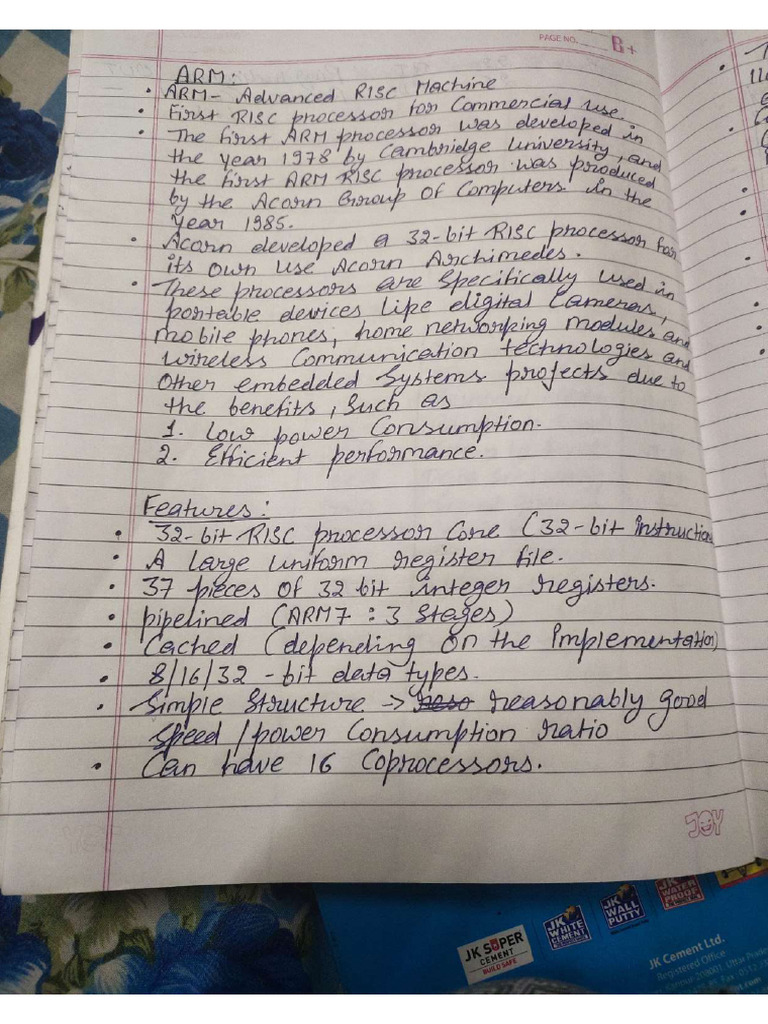 PAGE NO.
B+
ARM:
• ARM- Advanced RISC Machine
• First RISC processor for Commercial use.
• The first ARM processor was developed in
the year 1978 by Cambridge University, and
the first ARM RISC processor was produced
by the Acorn Group of Computers in the
year 1985.
• Acorn developed a 32-bit RISC processor for
its own use Acorn Archimedes.
• These processors are specifically used in
portable devices like digital Cameras,
mobile phones, home networking modules and
wireless Communication technologies and
Other embedded systems projects due to
the benefits, such as
1. Low power Consumption.
2. Efficient performance.
Features:
• 32-bit RISC processor Core (32-bit instruction
• A large uniform register file.
• 37 pieces of 32 bit integer registers.
• pipelined (ARM7 : 3 Stages)
• Cached (depending on the implementation)
• 8/16/32 - bit data types.
• Simple structure -> reasonably good
speed / power Consumption ratio
• Can have 16 Coprocessors.
JOY
JK SUPER
CEMENT
BUILD SAFE
JK
WHITE
CEMENT
JK
WALL
PUTTY
JK
WATER
PROOF
JK Cement Ltd.
Registered Office